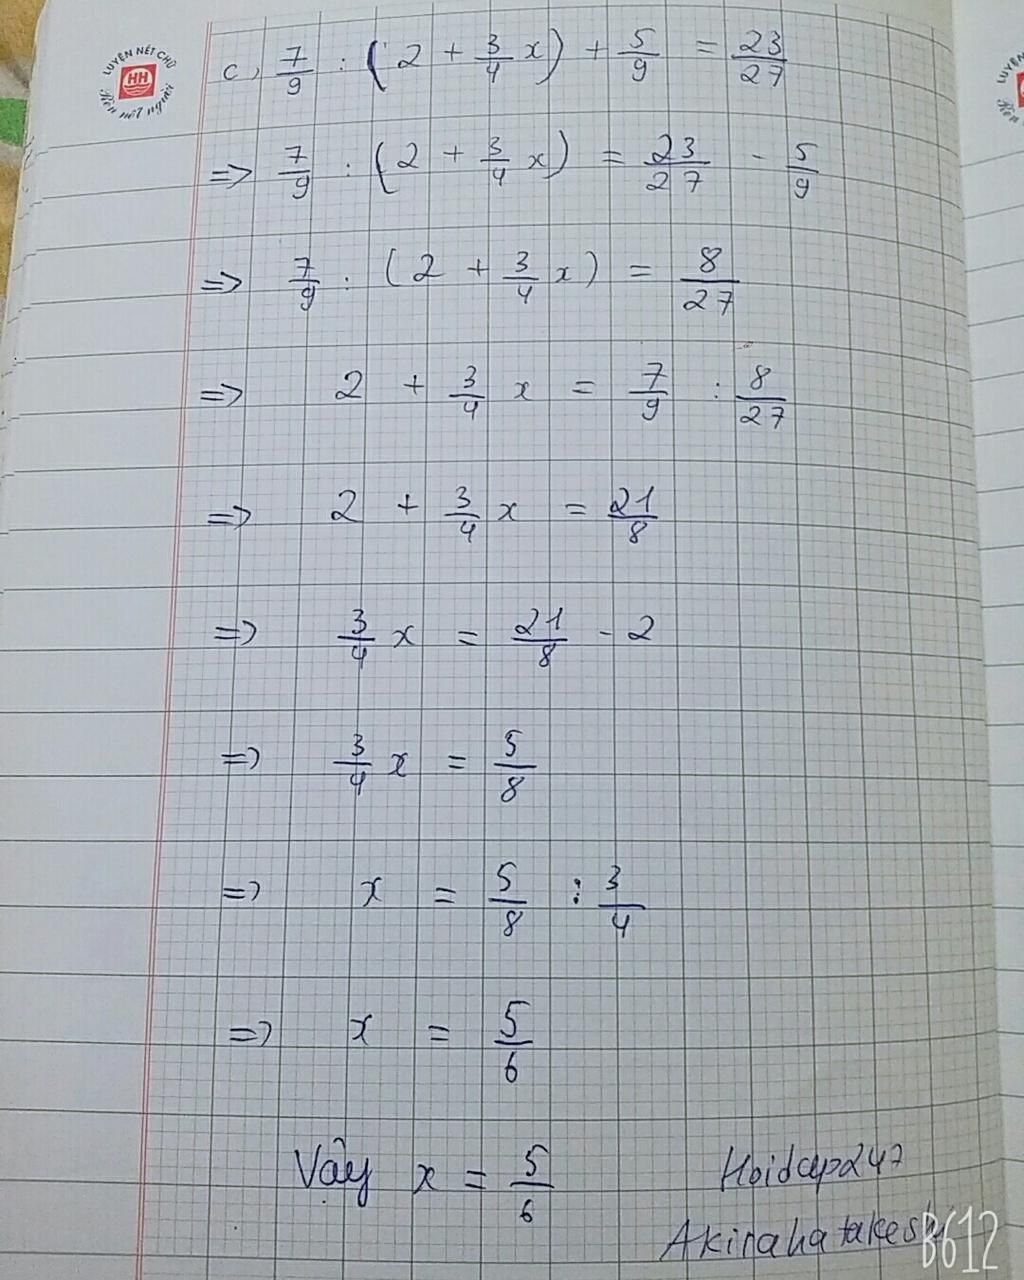 LUYỆN NÉT CHỮ
HH
Rèn nết người
c, 7/9 : (2 + 3/4 x) + 5/9 = 23/27
=> 7/9 : (2 + 3/4 x) = 23/27 - 5/9
=> 7/9 : (2 + 3/4 x) = 8/27
=> 2 + 3/4 x = 7/9 : 8/27
=> 2 + 3/4 x = 21/8
=> 3/4 x = 21/8 - 2
=> 3/4 x = 5/8
=> x = 5/8 : 3/4
=> x = 5/6
Vậy x = 5/6
Hoidap247
B612